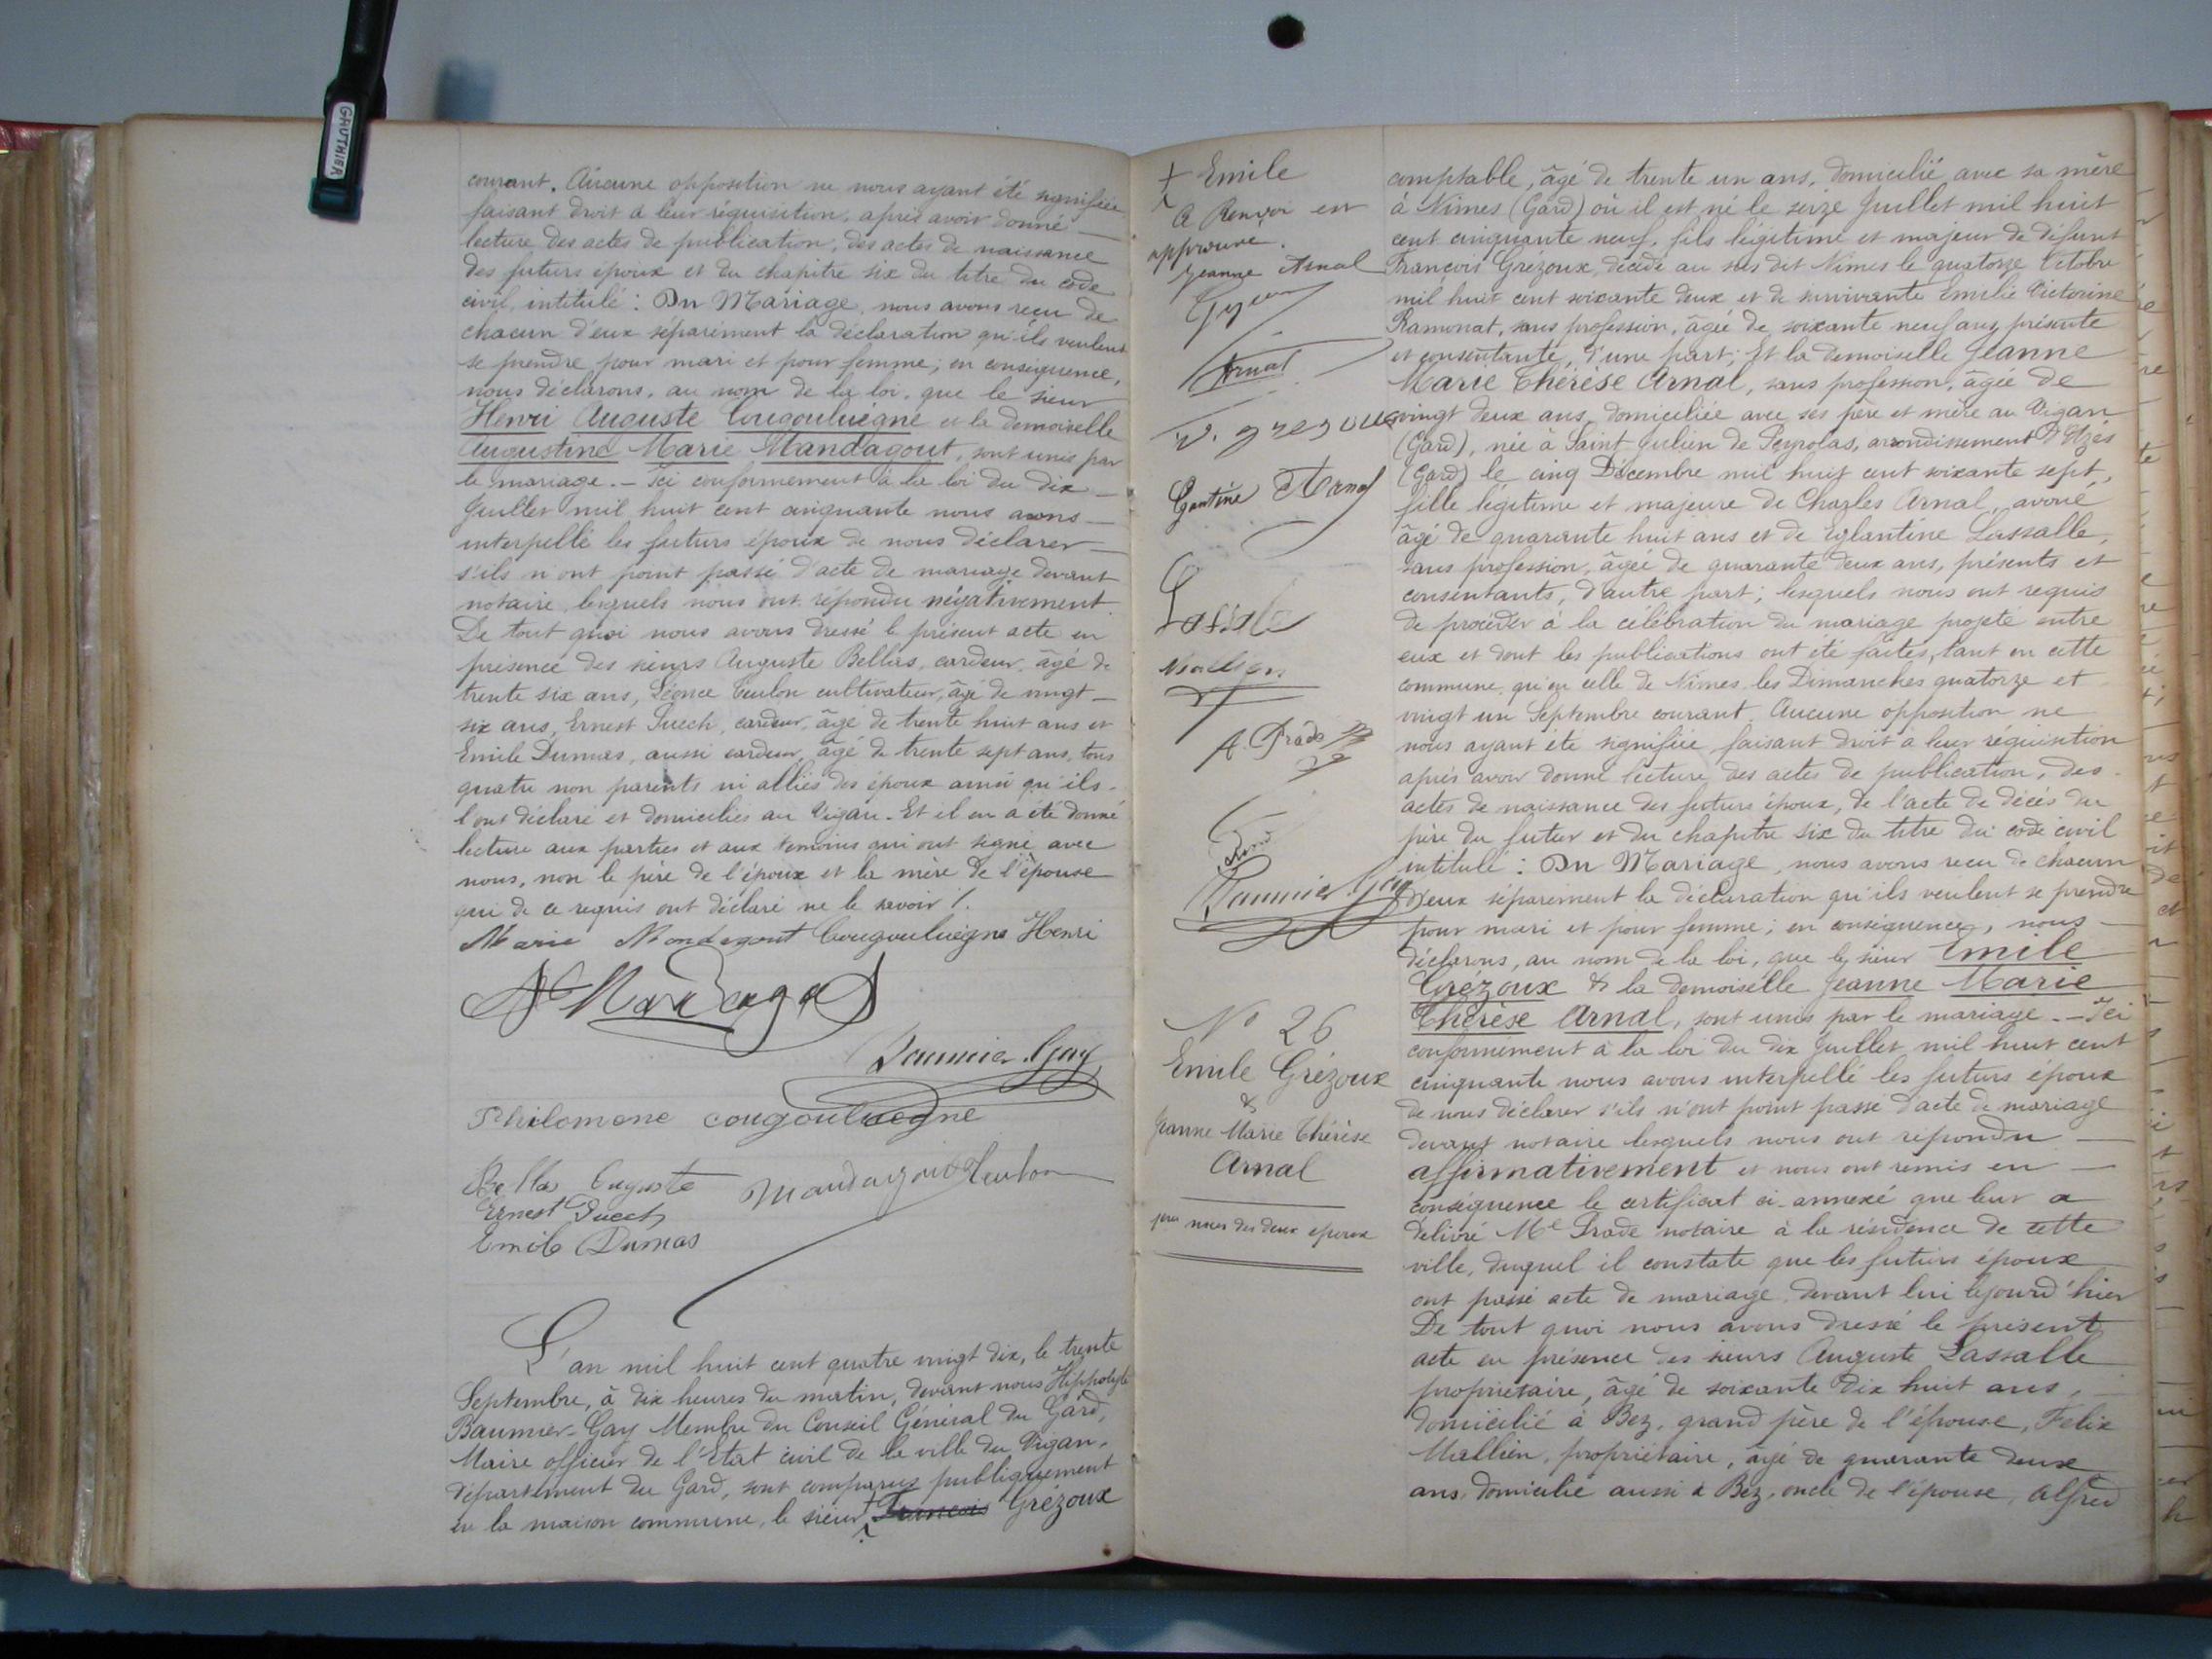 GAUTHIER
courant. Aucune opposition ne nous ayant été signifiée
faisant droit à leur réquisition, après avoir donné
lecture des actes de publication, des actes de naissance
des futurs époux et du chapitre six du titre du code
civil, intitulé : Du Mariage, nous avons reçu de
chacun d'eux séparément la déclaration qu'ils veulent
se prendre pour mari et pour femme ; en conséquence,
nous déclarons, au nom de la loi, que le sieur
Henri Auguste Cougouluègne et la demoiselle
Augustine Marie Mandagout, sont unis par
le mariage. - Ici conformément à la loi du dix
Juillet mil huit cent cinquante nous avons
interpellé les futurs époux de nous déclarer
s'ils n'ont point passé d'acte de mariage devant
notaire, lesquels nous ont répondu négativement.
De tout quoi nous avons dressé le présent acte en
présence des sieurs Auguste Bellas, cardeur, âgé de
trente six ans, Léonce Teulon cultivateur, âgé de vingt
six ans, Ernest Puech, cardeur, âgé de trente huit ans et
Emile Dumas, aussi cardeur, âgé de trente sept ans, tous
quatre non parents ni alliés des époux ainsi qu'ils
l'ont déclaré et domiciliés au Vigan. Et il en a été donné
lecture aux parties et aux témoins qui ont signé avec
nous, non le père de l'époux et la mère de l'épouse
qui de ce requis ont déclaré ne le savoir /.
Marie Mandagout Cougouluègne Henri
Baumier-Gay
Philomene cougouluegne
Bellas Auguste Mandagout Teulon
Ernest Puech
Emile Dumas
L'an mil huit cent quatre vingt dix, le trente
Septembre, à dix heures du matin, devant nous Hippolyte
Baumier-Gay Membre du Conseil Général du Gard,
Maire officier de l'Etat civil de la ville du Vigan,
département du Gard, sont comparus publiquement
en la maison commune, le sieur François Grézoux
+ Emile
Renvoi est
approuvé.
Jeanne Arnal
Arnal
v. grezoux
Arnal
Lassalle
Mallien
A. Prade
Baumier Gay
No 26
Emile Grézoux
&
Jeanne Marie Thérèse
Arnal
pres noces des deux epoux
comptable, âgé de trente un ans, domicilié avec sa mère
à Nimes (Gard) où il est né le seize Juillet mil huit
cent cinquante neuf, fils légitime et majeur de défunt
François Grézoux, décédé au sus dit Nimes le quatorze Octobre
mil huit cent soixante deux et de survivante Emilie Victorine
Ramonat, sans profession, âgée de soixante neuf ans, présente
et consentante, d'une part ; Et la demoiselle Jeanne
Marie Thérèse Arnal, sans profession, âgée de
vingt deux ans, domiciliée avec ses père et mère au Vigan
(Gard), née à Saint Julien de Peyrolas, arrondissement d'Uzès
(Gard) le cinq Décembre mil huit cent soixante sept,
fille légitime et majeure de Charles Arnal, avoué
âgé de quarante huit ans et de Eglantine Lassalle,
sans profession, âgée de quarante deux ans, présents et
consentants, d'autre part ; lesquels nous ont requis
de procéder à la célébration du mariage projeté entre
eux et dont les publications ont été faites, tant en cette
commune, qu'en celle de Nimes les Dimanches quatorze et
vingt un Septembre courant. Aucune opposition ne
nous ayant été signifiée, faisant droit à leur réquisition
après avoir donné lecture des actes de publication, des
actes de naissance des futurs époux, de l'acte de décès du
père du futur et du chapitre six du titre du code civil
intitulé : Du Mariage, nous avons reçu de chacun
d'eux séparément la déclaration qu'ils veulent se prendre
pour mari et pour femme ; en conséquence, nous
déclarons, au nom de la loi, que le sieur Emile
Grézoux & la demoiselle Jeanne Marie
Thérèse Arnal, sont unis par le mariage. - Ici
conformément à la loi du dix Juillet mil huit cent
cinquante nous avons interpellé les futurs époux
de nous déclarer s'ils n'ont point passé d'acte de mariage
devant notaire lesquels nous ont répondu
affirmativement et nous ont remis en
conséquence le certificat ci-annexé que leur a
délivré Me Prade notaire à la résidence de cette
ville, duquel il constate que les futurs époux
ont passé acte de mariage devant lui cejourd'hier
De tout quoi nous avons dressé le présent
acte en présence des sieurs Auguste Lassalle
propriétaire, âgé de soixante dix huit ans,
domicilié à Bez, grand père de l'épouse, Felix
Mallien, propriétaire, âgé de quarante deux
ans, domicilié aussi à Bez, oncle de l'épouse, Alfred